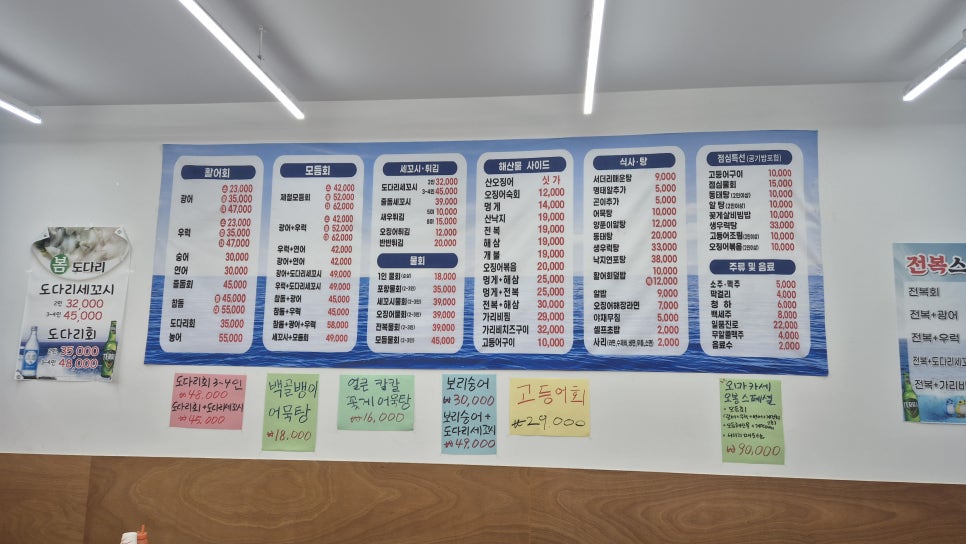 봄 도다리
도다리세꼬시
2인 32,000
3~4인 45,000
도다리회
2인 35,000
3~4인 48,000
활어회
광어 소 23,000
중 35,000
대 47,000
우럭 소 23,000
중 35,000
대 47,000
숭어 30,000
연어 30,000
줄돔회 45,000
참돔 중 45,000
대 55,000
도다리회 35,000
농어 55,000
모듬회
제철모듬회 소 42,000
중 52,000
대 62,000
광어+우럭 소 42,000
중 52,000
대 62,000
우럭+연어 42,000
광어+연어 42,000
광어+도다리세꼬시 49,000
우럭+도다리세꼬시 49,000
참돔+광어 45,000
참돔+우럭 45,000
참돔+광어+우럭 58,000
세꼬시+모듬회 49,000
세꼬시·튀김
도다리세꼬시 2인 32,000
3~4인 45,000
줄돔세꼬시 39,000
새우튀김 5미 10,000
8미 15,000
오징어튀김 12,000
반반튀김 20,000
물회
1인 물회 18,000
포항물회(2~3인) 39,000
세꼬시물회(2~3인) 39,000
오징어물회(2~3인) 39,000
전복물회(2~3인) 39,000
모듬물회(2~3인) 45,000
해산물 사이드
산오징어 싯가
오징어숙회 12,000
멍게 14,000
산낙지 19,000
전복 19,000
해삼 19,000
개불 19,000
오징어볶음 20,000
멍게+해삼 25,000
멍게+전복 25,000
전복+해삼 30,000
가리비찜 29,000
가리비치즈구이 32,000
고등어구이 10,000
식사·탕
서더리매운탕 9,000
명태알추가 5,000
곤이추가 5,000
어묵탕 10,000
양푼이알탕 12,000
동태탕 20,000
생우럭탕 33,000
낙지연포탕 38,000
활어회덮밥 10,000
12,000
알밥 9,000
오징어해장라면 7,000
야채무침 5,000
셀프초밥 2,000
사리 2,000
점심특선 (공기밥포함)
고등어구이 10,000
점심물회 15,000
동태탕(2인이상) 10,000
알탕(2인이상) 10,000
꽃게살비빔밥 10,000
생우럭탕 33,000
고등어조림(2인이상) 10,000
오징어볶음(2인이상) 10,000
주류 및 음료
소주·맥주 5,000
막걸리 4,000
청하 6,000
백세주 8,000
일품진로 22,000
무알콜맥주 4,000
음료수 2,000
전복스
전복회
전복+광어
전복+우럭
전복+도다리세꼬
전복+가리비
도다리회 3~4인
₩48,000
도다리회+도다리세꼬시
₩45,000
백골뱅이
어묵탕
₩18,000
얼큰 칼칼
꽃게어묵탕
₩16,000
보리숭어
₩30,000
보리숭어+
도다리세꼬시
₩49,000
고등어회
₩29,000
오마카세
오봉 스페셜
₩90,000